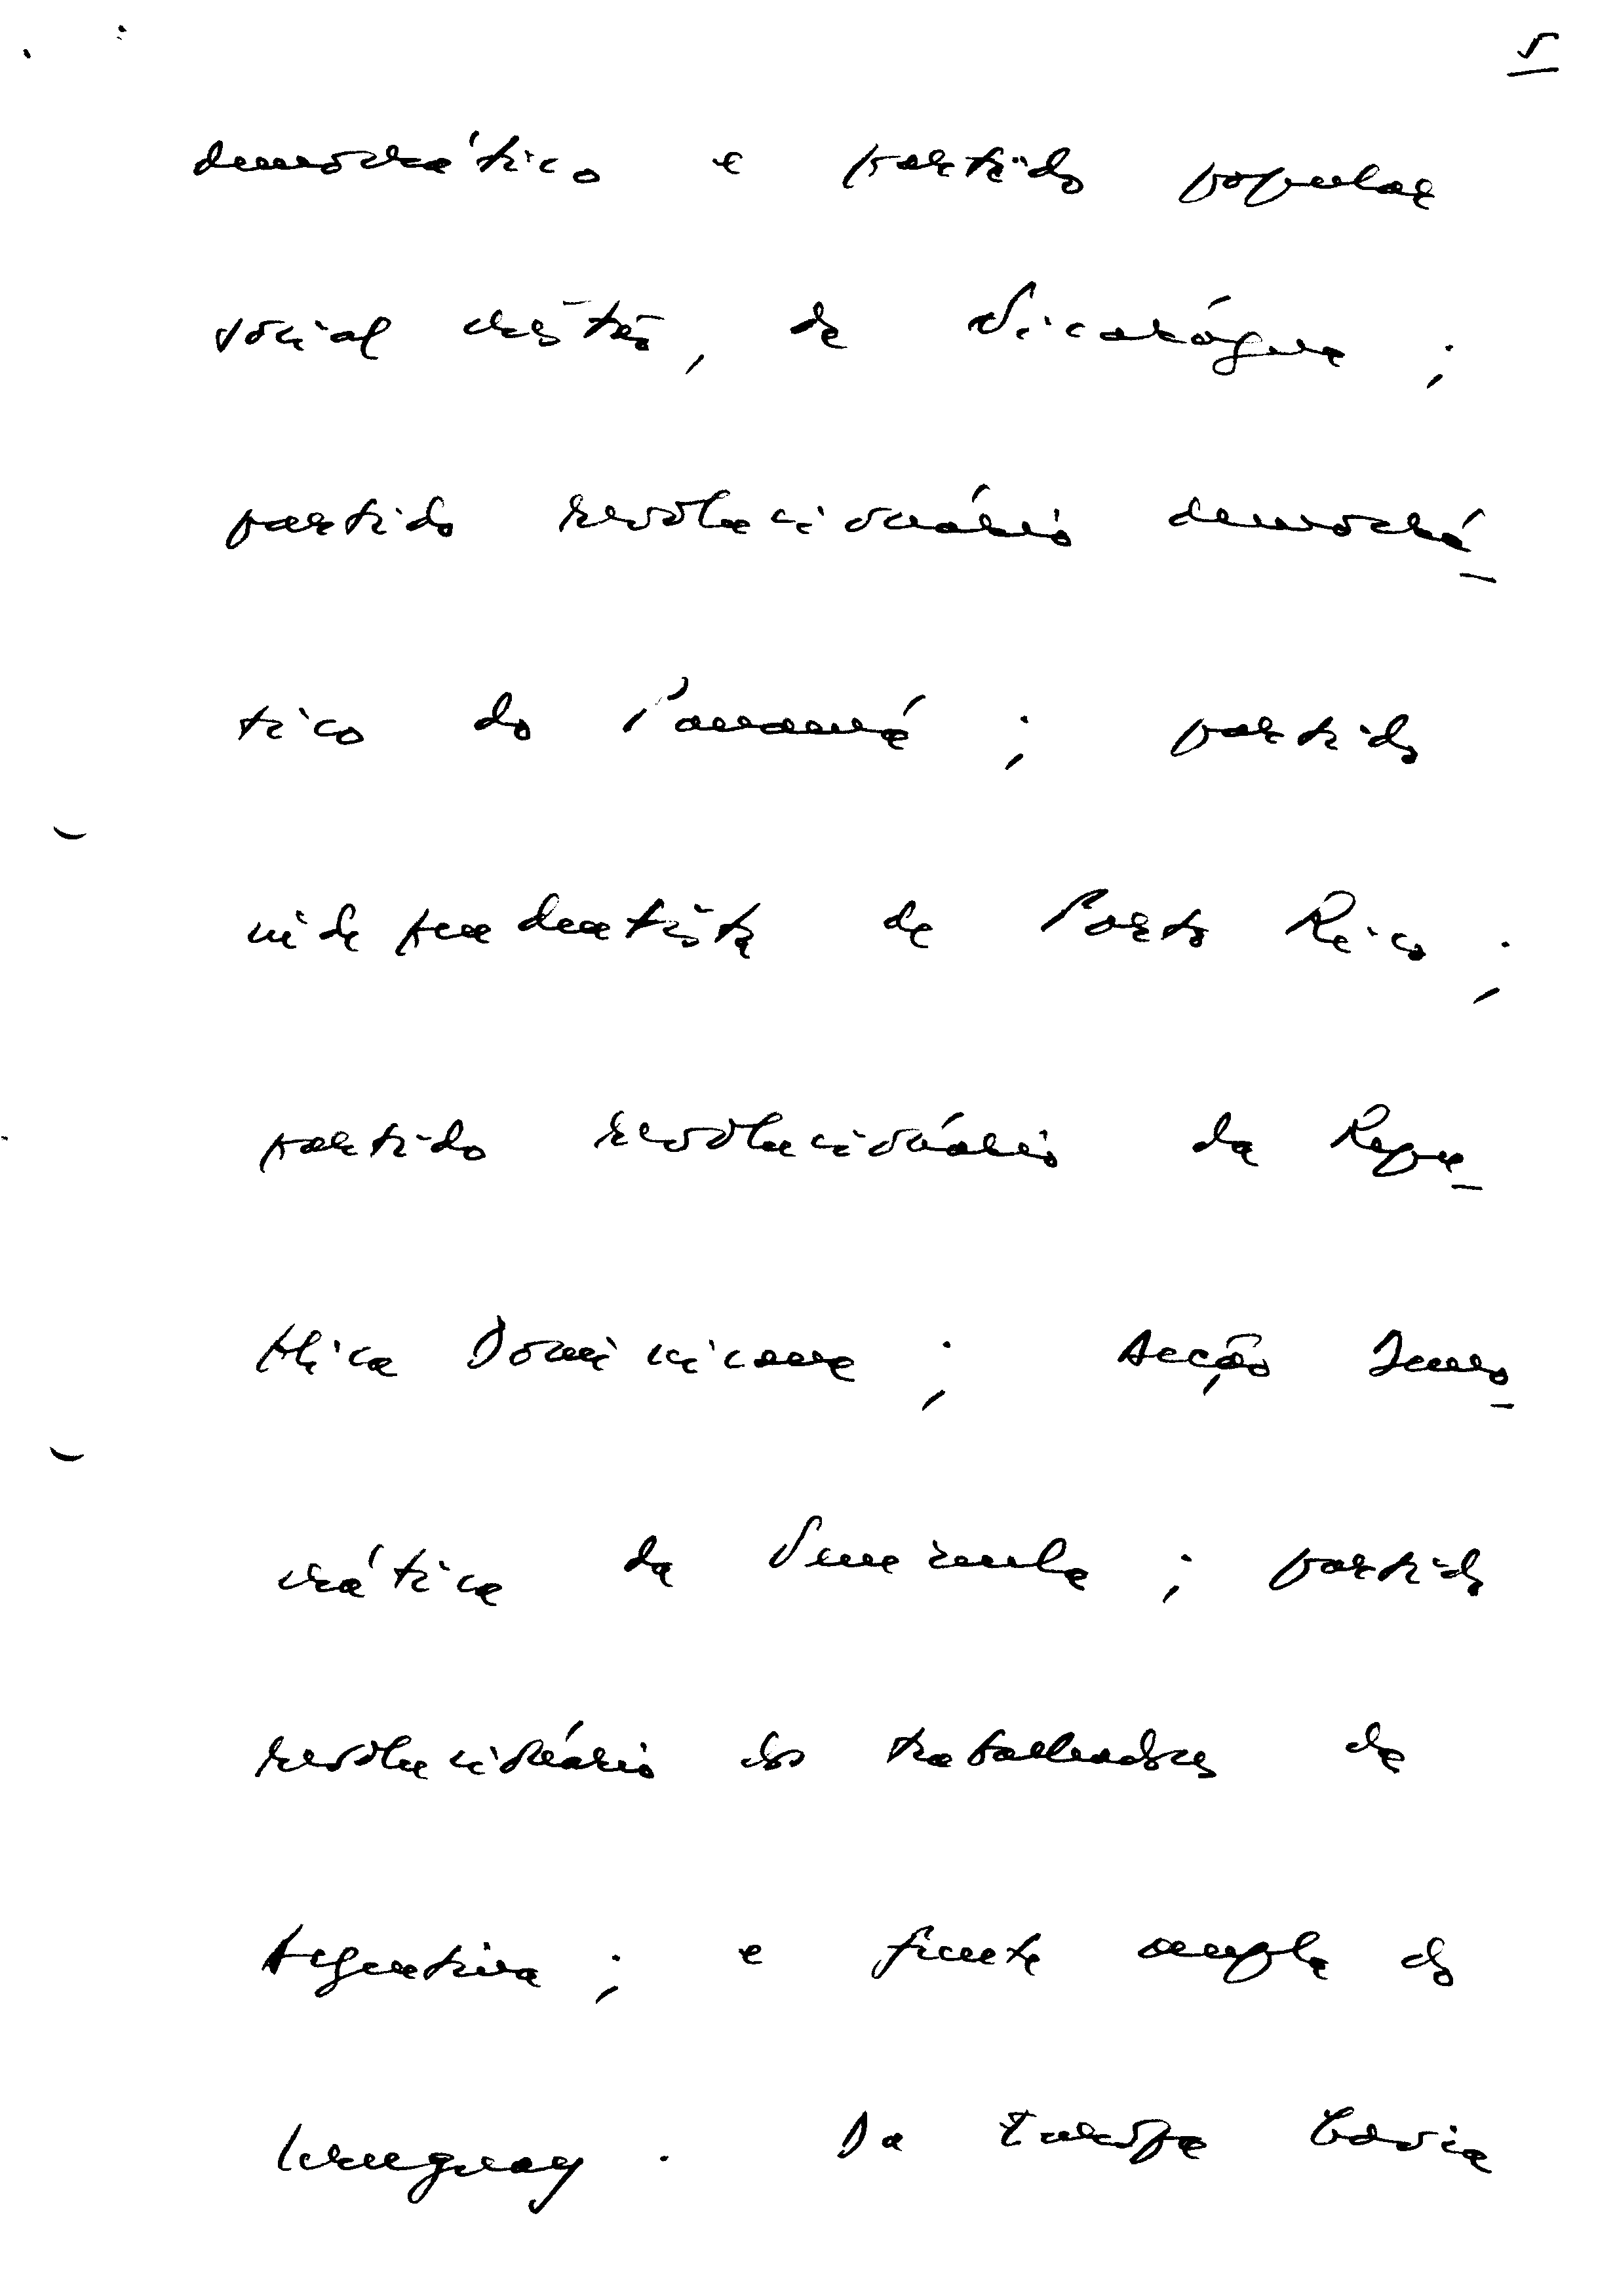 5
democrático e partido popular
social cristão, de Nicarágua ;
partido revolucionário democrá-
tico do Panamá ; partido
independentista de Porto Rico ;
partido revolucionário da Repu-
blica Dominicana ; Acção Demo-
crática da Venezuela ; partido
revolucionário dos trabalhadores da
Argentina ; e frente ampla do
Uruguay . Da Europa havia